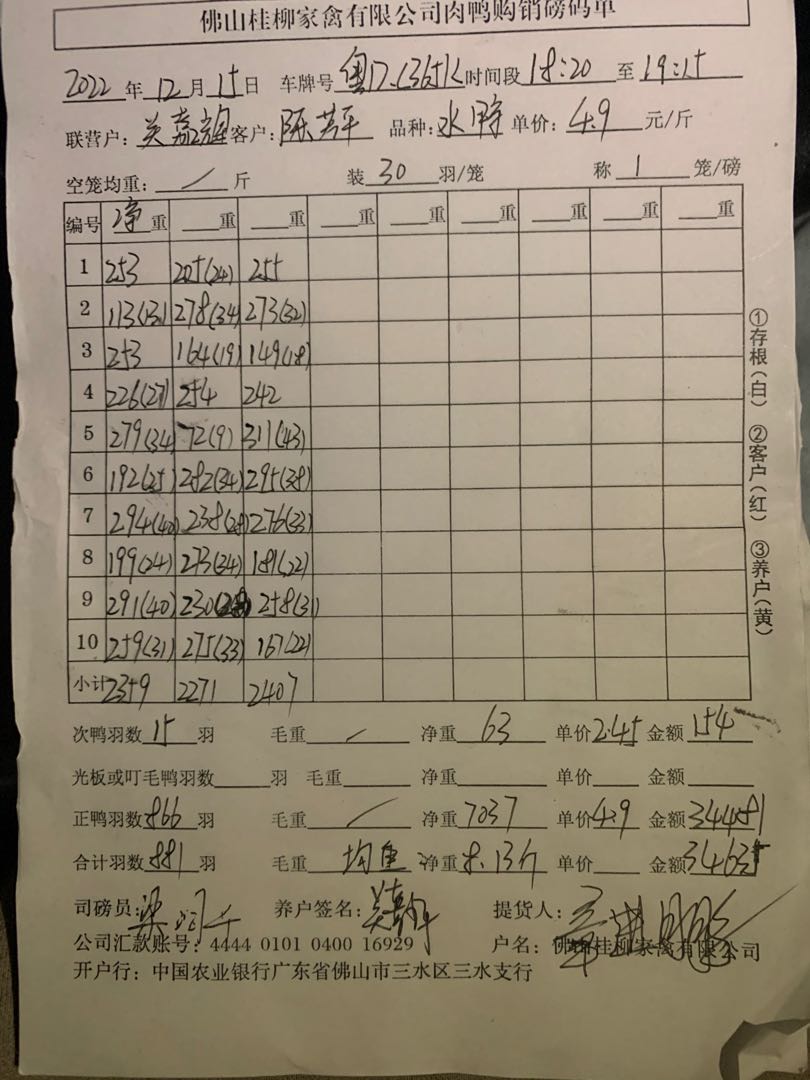 佛山桂柳家禽有限公司肉鸭购销磅码单
2022 年 12 月 15 日 车牌号 时间段 18:20 至 19:15
联营户: 关嘉 客户: 陈芳平 品种: 水鸭 单价: 4.9 元/斤
空笼均重: / 斤 装 30 羽/笼 称 1 笼/磅
编号 净重 重 重 重 重 重 重 重 重
1 253 205(24) 255
2 113(13) 278(34) 273(32)
3 253 164(19) 149(18)
4 226(27) 254 242
5 279(34) 72(9) 311(43)
6 192(25) 282(34) 295(38)
7 294(40) 238(28) 276(33)
8 199(24) 273(34) 181(22)
9 291(40) 230(28) 258(31)
10 259(31) 275(33) 167(22)
小计 2359 2271 2407
次鸭羽数 15 羽 毛重 / 净重 63 单价 2.45 金额 154
光板或叮毛鸭羽数 羽 毛重 净重 单价 金额
正鸭羽数 866 羽 毛重 / 净重 7037 单价 4.9 金额 34481
合计羽数 881 羽 毛重 均重 净重 8.13斤 单价 金额 34635
司磅员: 梁 养户签名: 关嘉 提货人:
公司汇款账号: 4444 0101 0400 16929 户名: 佛山桂柳家禽有限公司
开户行: 中国农业银行广东省佛山市三水区三水支行
①存根(白) ②客户(红) ③养户(黄)